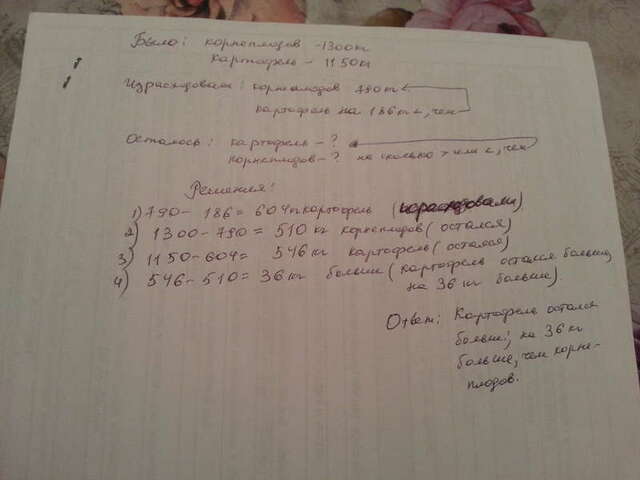 Было: корнеплодов - 1300 кг
картофель - 1150 кг
Израсходовали: корнеплодов 790 кг
картофель на 186 кг <, чем
Осталось: картофель - ?
корнеплодов - ? на сколько > или <, чем
Решения:
1) 790 - 186 = 604 кг картофель (израсходовали)
2) 1300 - 790 = 510 кг корнеплодов (остался)
3) 1150 - 604 = 546 кг картофель (остался)
4) 546 - 510 = 36 кг больше (картофель остался больше,
на 36 кг больше).
Ответ: Картофель остался
больше, на 36 кг
больше, чем корне-
плодов.